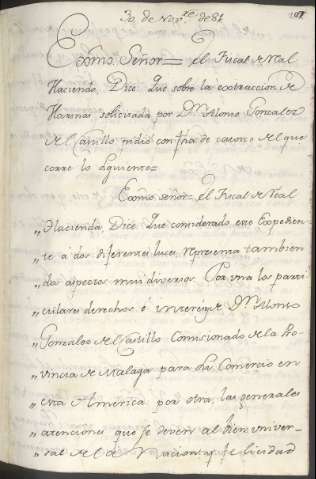 30, de Nov.re de 81
Exômo. Señor= el Fiscal de Real
Hacienda, Dice: Que sobre la extraccion de
Harinas solicitada por Dn. Alonso Gonzalez
del Castillo pidio con fha de catorce del que
corre lo siguiente=
Exômo señor= el Fiscal de Real
„ Hacienda, Dice: Que considerado este Expedien
„ te a dos diferentes luces, representa tambien
„ dos aspectos mui diversos. Por una los parti
„ culares derechos é intereses de Dn. Alonso
„ Gonzalez del Castillo Comisionado de la Pro
„ vincia de Malaga para su Comercio en
„ esta America: por otra, las generales
„ atenciones que se deven al bien univer
„ sal de la Nacion, a felicidad